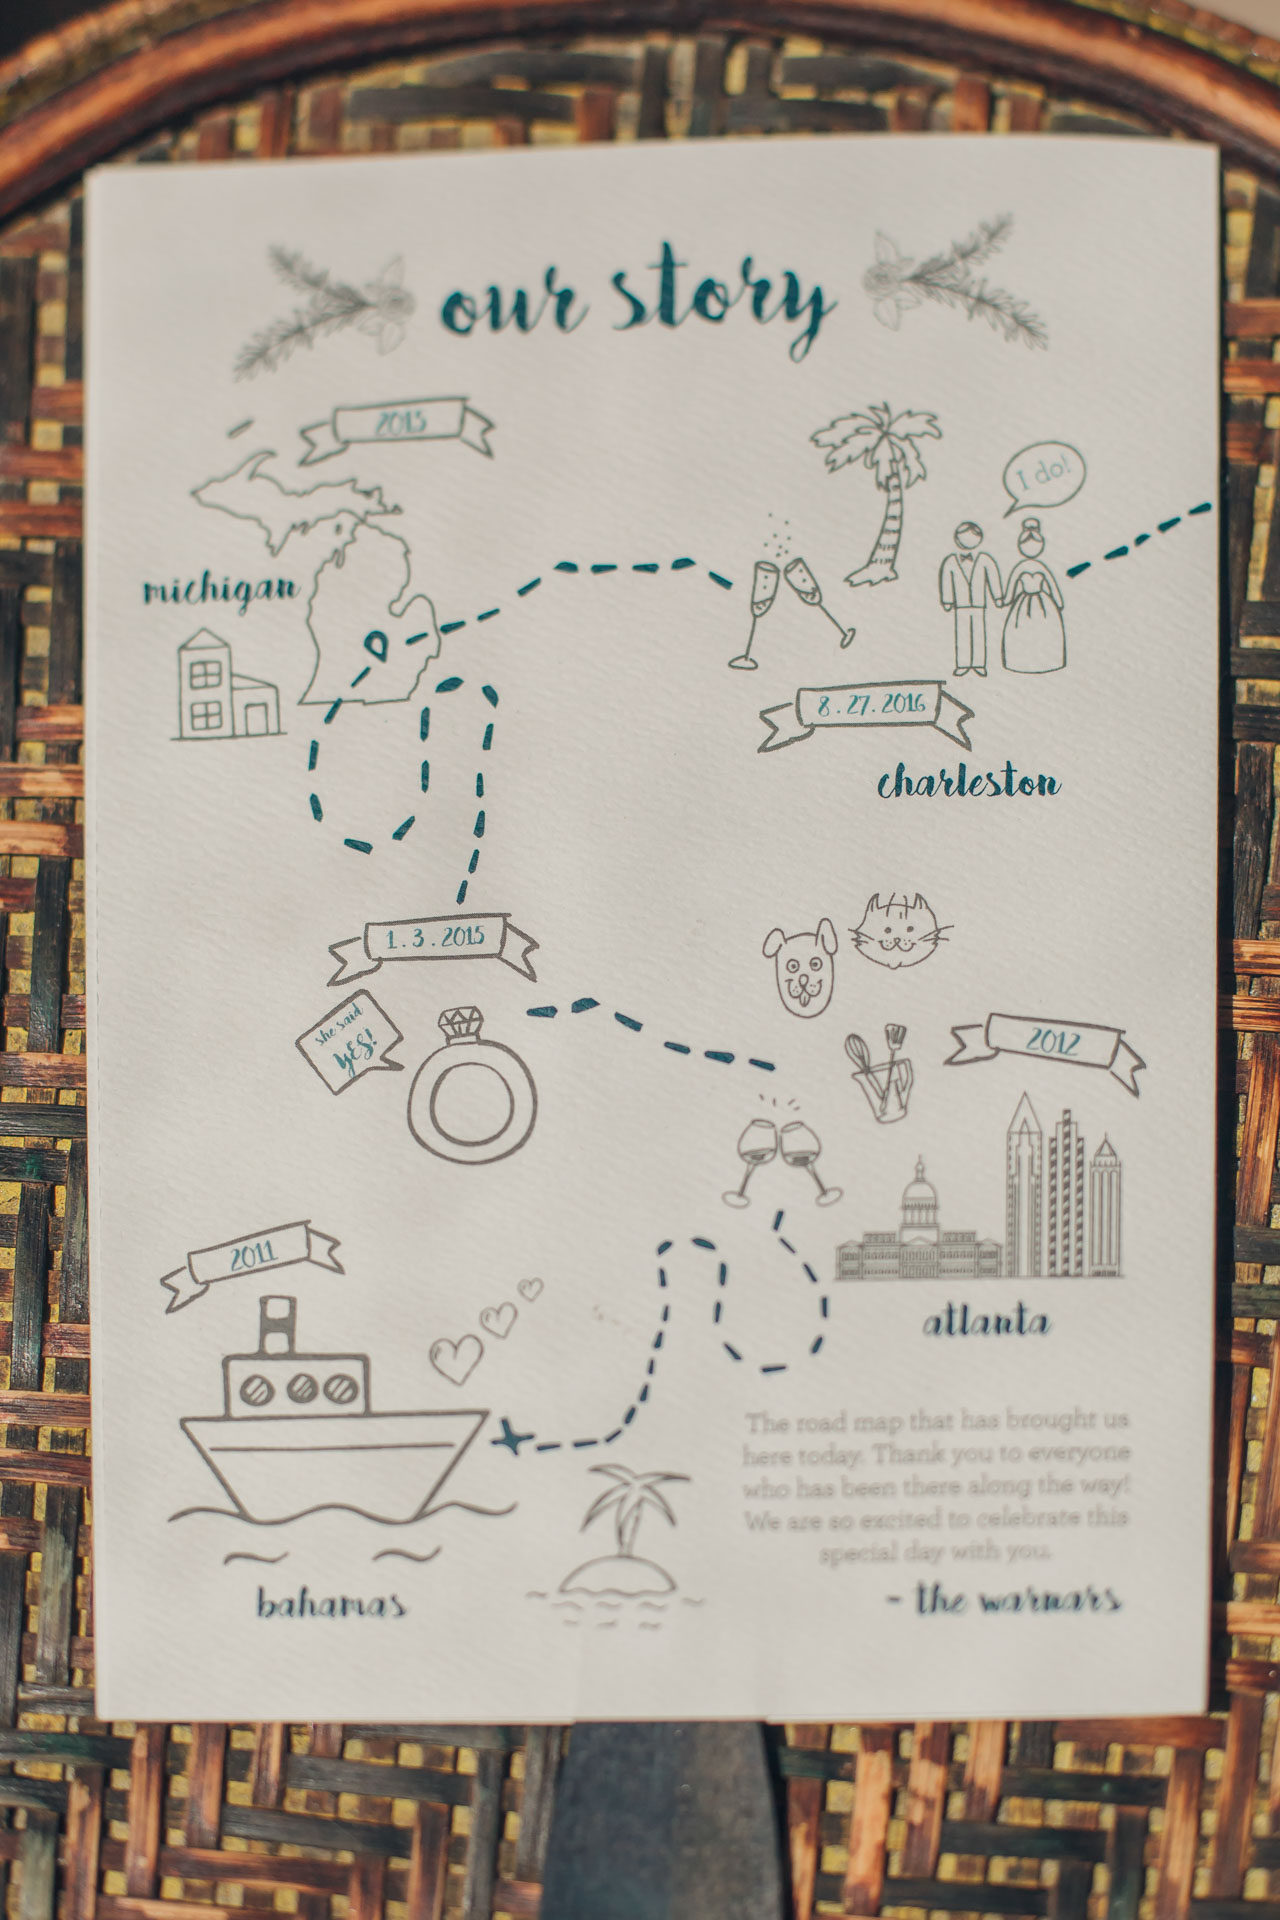 our story
2015
I do!
michigan
8.27.2016
charleston
1.3.2015
she said
YES!
2012
2011
atlanta
The road map that has brought us
here today. Thank you to everyone
who has been there along the way!
We are so excited to celebrate this
special day with you.
- the warnars
bahamas